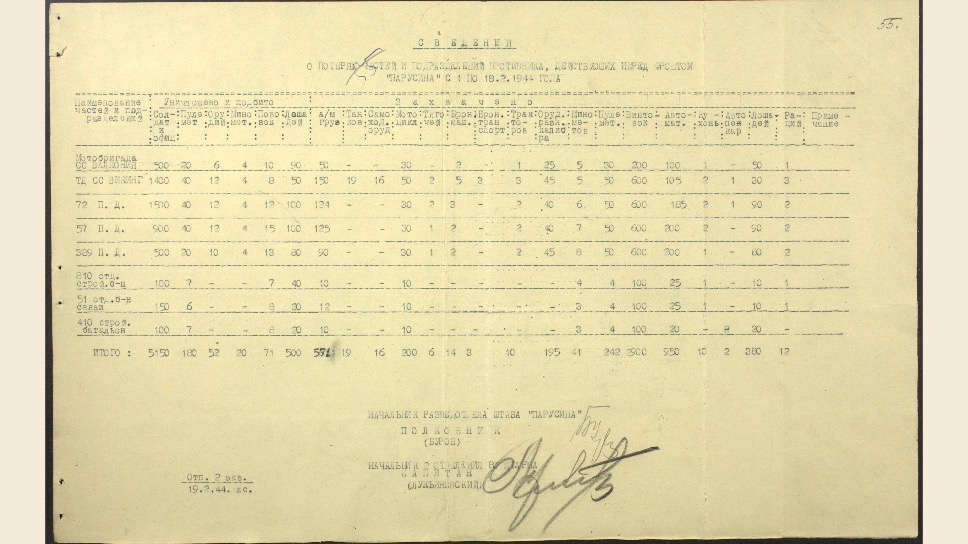 55.
СВЕДЕНИЯ
О ПОТЕРЯХ ЧАСТЕЙ И ПОДРАЗДЕЛЕНИЙ ПРОТИВНИКА, ДЕЙСТВУЮЩИХ ПЕРЕД ФРОНТОМ
"ПАРУСИНА" С 1 ПО 18.2.1944 ГОДА
Наименование частей и подразделений Уничтожено и подбито Захвачено
Солдат и офиц. Пулемет Орудий Мино мет. Пово вок Лоша дей а/м груз Тан ков Само ход. оруд Мото цикл Тяга чей Брон маш. Брон тран спорт Тран то- ров Оруд. разн. калиб ра Мино ме- тов Пуле мет. Винто- вок Авто- мат. Ку- хонь Лоша- дей Ра- ций Приме - чание
Мотобригада
СС ВАЛЛОНИЯ 500 20 6 4 10 90 50 - - 30 - 2 - 1 25 5 30 200 100 1 - 50 1
ТД СС ВИКИНГ 1400 40 12 4 8 50 150 19 16 50 2 5 3 3 45 5 50 600 105 2 1 30 3
72 П. Д. 1500 40 12 4 12 100 124 - - 30 2 3 - 2 40 6 50 600 185 2 1 90 2
57 П. Д. 900 40 12 4 15 100 125 - - 30 1 2 - 2 40 7 50 600 200 2 - 90 2
389 П. Д. 500 20 10 4 13 80 90 - - 30 1 2 - 2 45 8 50 600 200 1 - 80 2
810 отд.
строй.б-н 100 7 - - 7 40 10 - - 10 - - - - - 4 4 100 25 1 - 10 1
51 отд.б-н
связи 150 6 - - 8 20 12 - - 10 - - - - - 3 4 100 25 1 - 10 1
410 строй.
батальон 100 7 - - 8 20 10 - - 10 - - - - - 3 4 100 20 - 20 -
ИТОГО : 5150 180 52 20 71 500 551 19 16 200 6 14 3 10 195 41 242 2900 950 10 2 380 12
НАЧАЛЬНИК РАЗВЕДОТДЕЛА ШТАБА "ПАРУСИНА"
ПОЛКОВНИК
НАЧАЛЬНИК 2 ОТДЕЛЕНИЯ
КАПИТАН
(ЛУКЬЯНОВСКИЙ)
Отп. 2 экз.
19.2.44.